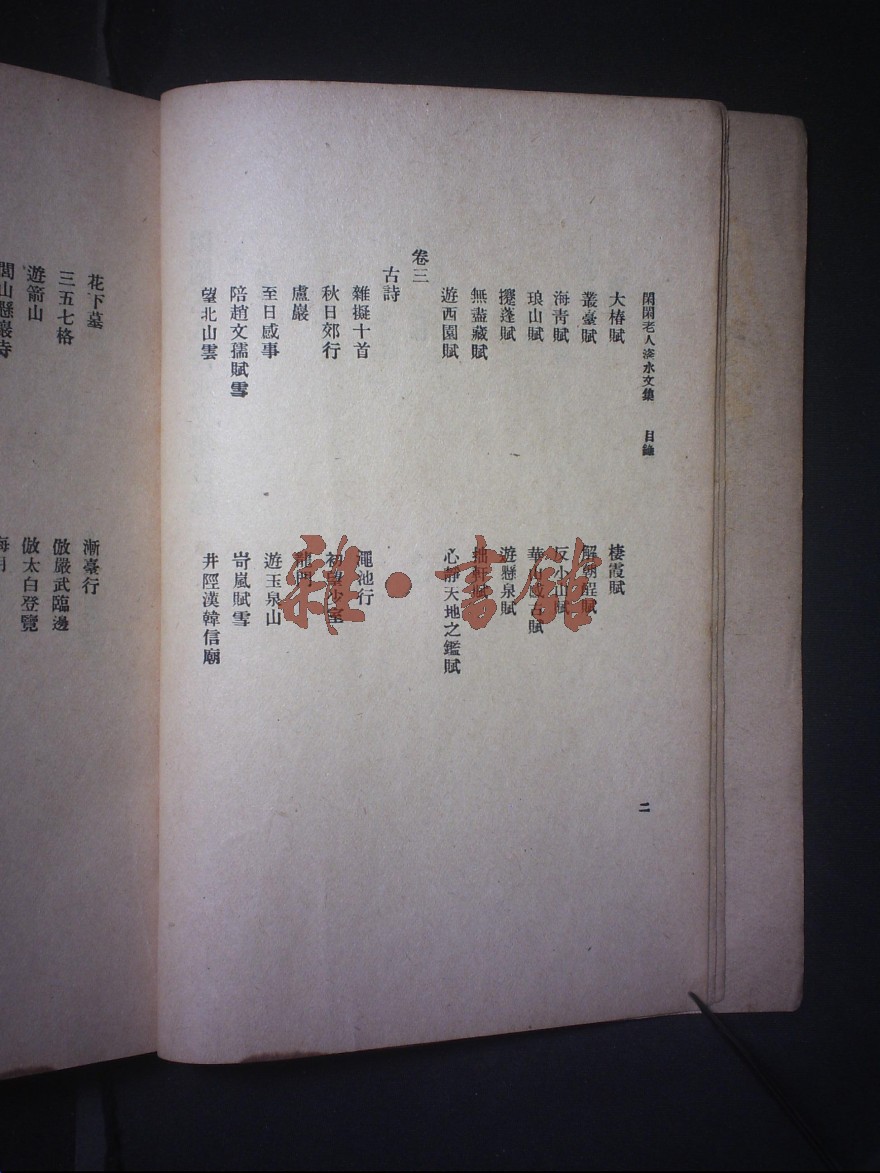 閑閑老人滏水文集　目錄
大椿賦　棲霞賦
叢臺賦　解朝酲賦
海青賦　反小山賦
琅山賦　華山感古賦
攓蓬賦　遊懸泉賦
無盡藏賦　拙軒賦
遊西園賦　心靜天地之鑑賦
卷三
古詩
雜擬十首　澠池行
秋日郊行　初望少室
盧巖　龍門
至日感事　遊玉泉山
陪趙文孺賦雪　岢嵐賦雪
望北山雲　井陘漢韓信廟
二
花下墓　漸臺行
三五七格　倣嚴武臨邊
遊箭山　倣太白登覽
閭山懸巖寺　海月
雜·書館